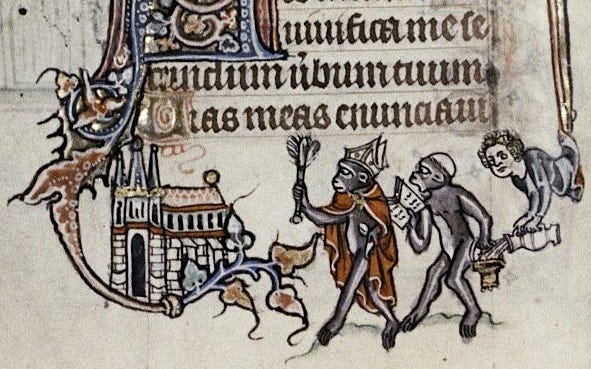 uiuifica me se
cundum ūbum tuum
Uias meas enunciaui